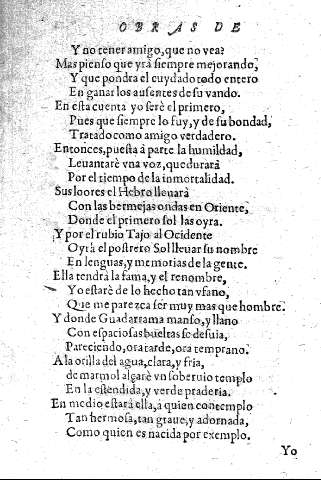 OBRAS DE
Y no tener amigo, que no vea?
Mas pienso que yrà siempre mejorando,
Y que pondra el cuydado todo entero
En ganar los ausentes de su vando.
En esta cuenta yo serè el primero,
Pues que siempre lo fuy, y de su bondad,
Tratado como amigo verdadero.
Entonces, puesta à parte la humildad,
Leuantarè vna voz, que durarà
Por el tiempo de la inmortalidad.
Sus loores el Hebro lleuarà
Con las bermejas ondas en Oriente,
Donde el primero sol las oyra.
Y por el rubio Tajo al Ocidente
Oyrà el postrero Sol lleuar su nombre
En lenguas, y memorias de la gente.
Ella tendrà la fama, y el renombre,
Yo estarè de lo hecho tan vfano,
Que me parezca ser muy mas que hombre.
Y donde Guadarrama manso, y llano
Con espaciosas bueltas se desuia,
Pareciendo, ora tarde, ora temprano.
A la orilla del agua, clara, y fria,
de marmol alçarè vn soberuio templo
En la estendida, y verde praderia.
En medio estarà ella, à quien contemplo
Tan hermosa, tan graue, y adornada,
Como quien es nacida por exemplo.
Yo